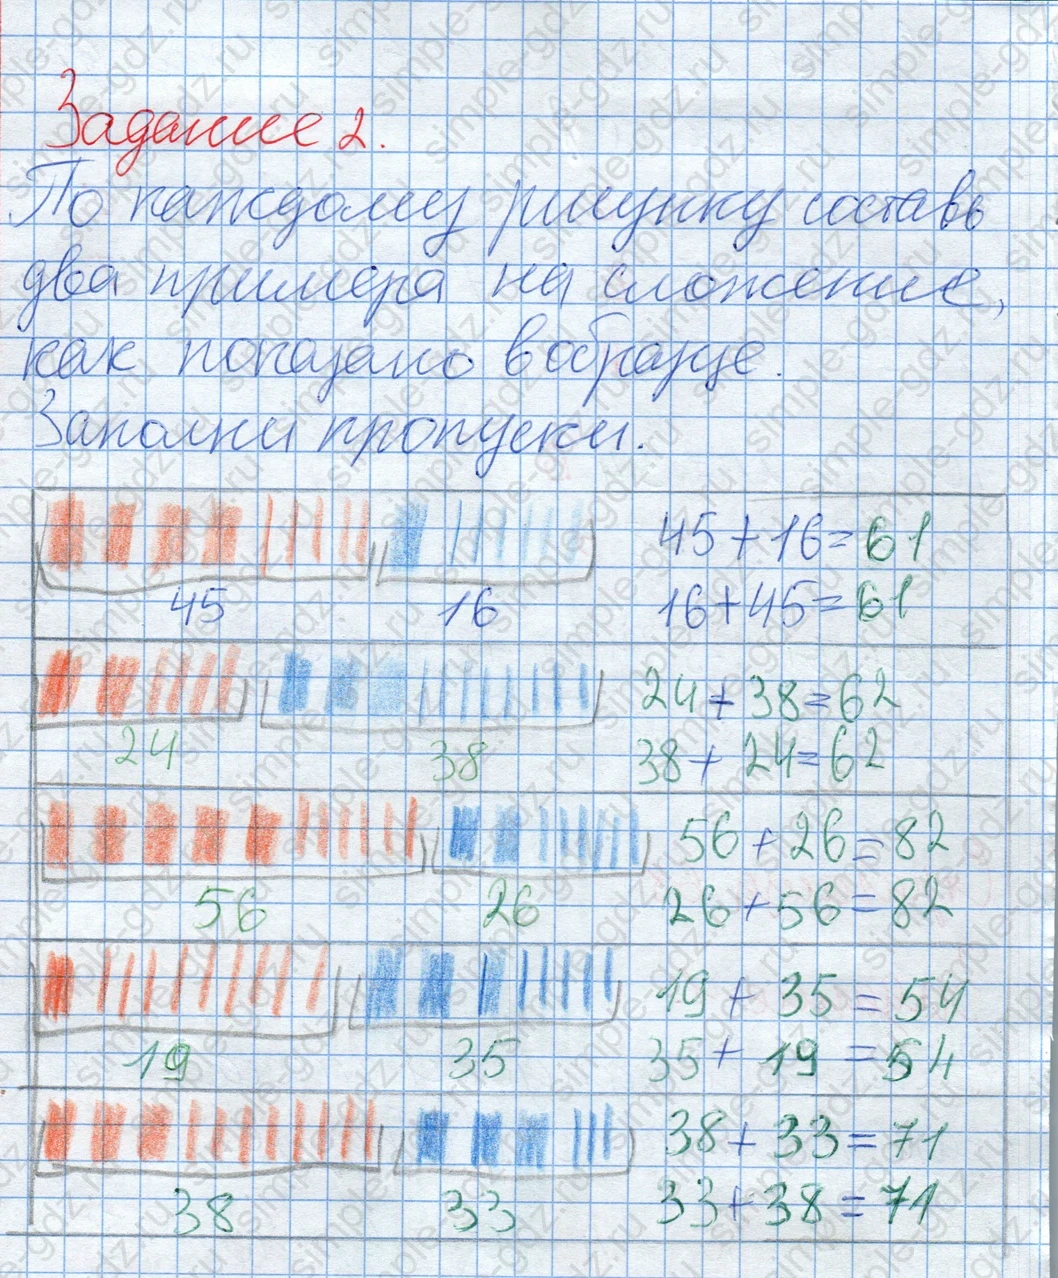 Задание 2.
По каждому рисунку составь
два примера на сложение,
как показано в образце.
Заполни пропуски.
45 + 16 = 61
45 16 16 + 45 = 61
24 + 38 = 62
24 38 38 + 24 = 62
56 + 26 = 82
56 26 26 + 56 = 82
19 + 35 = 54
19 35 35 + 19 = 54
38 + 33 = 71
38 33 33 + 38 = 71
simple-gdz.ru